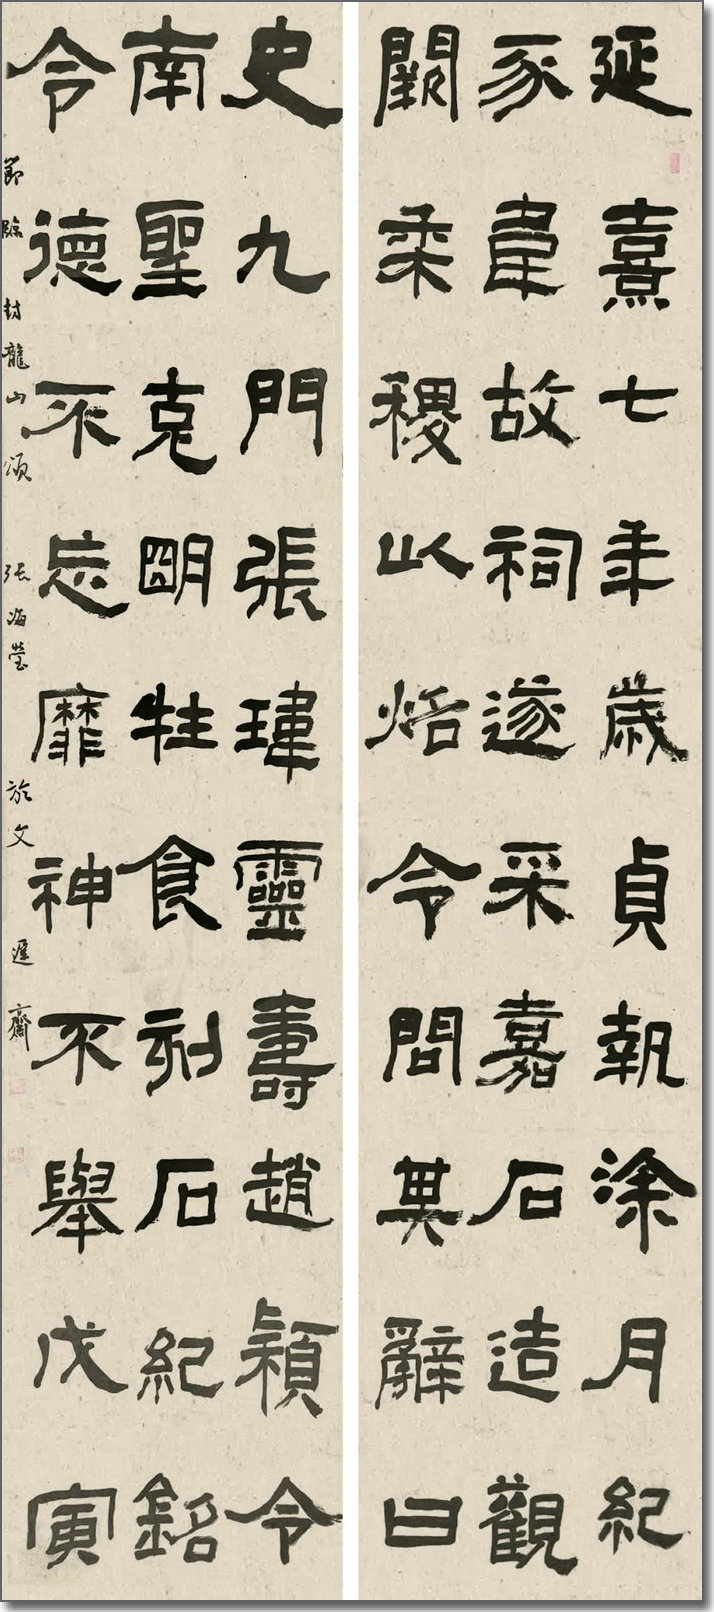 延熹七年歲貞執涂月紀
豕韋故祠遂采嘉石造觀
闕柔稷以炤令問其辭曰
史九門張瑋靈壽趙穎令
南聖克明牲食刻石紀銘
令德不忘靡神不舉戊寅
節臨封龍山頌 張海瑩 於文遲齋